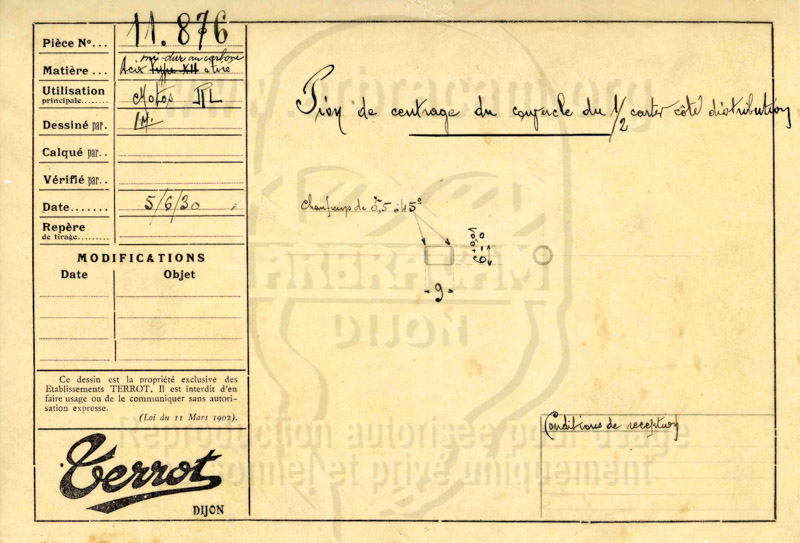 Pièce N°... 11.876
mi-dur au carbone
Matière... Acier type XII étiré
Utilisation
principale........ Motos
Dessiné par.
Calqué par..
Vérifié par..
Date....... 5/6/30
Repère
de tirage.........
MODIFICATIONS
Date Objet
Ce dessin est la propriété exclusive des
Etablissements TERROT. Il est interdit d'en
faire usage ou de le communiquer sans autori-
sation expresse.
(Loi du 11 Mars 1902).
Terrot
DIJON
Pion de centrage du couvercle du 1/2 carter côté distribution
Chanfreins de 0,5 à 45°
6 +0,01 -0
9
Conditions de réception
ARBRACAM
DIJON
Reproduction autorisée pour usage
et privé uniquement